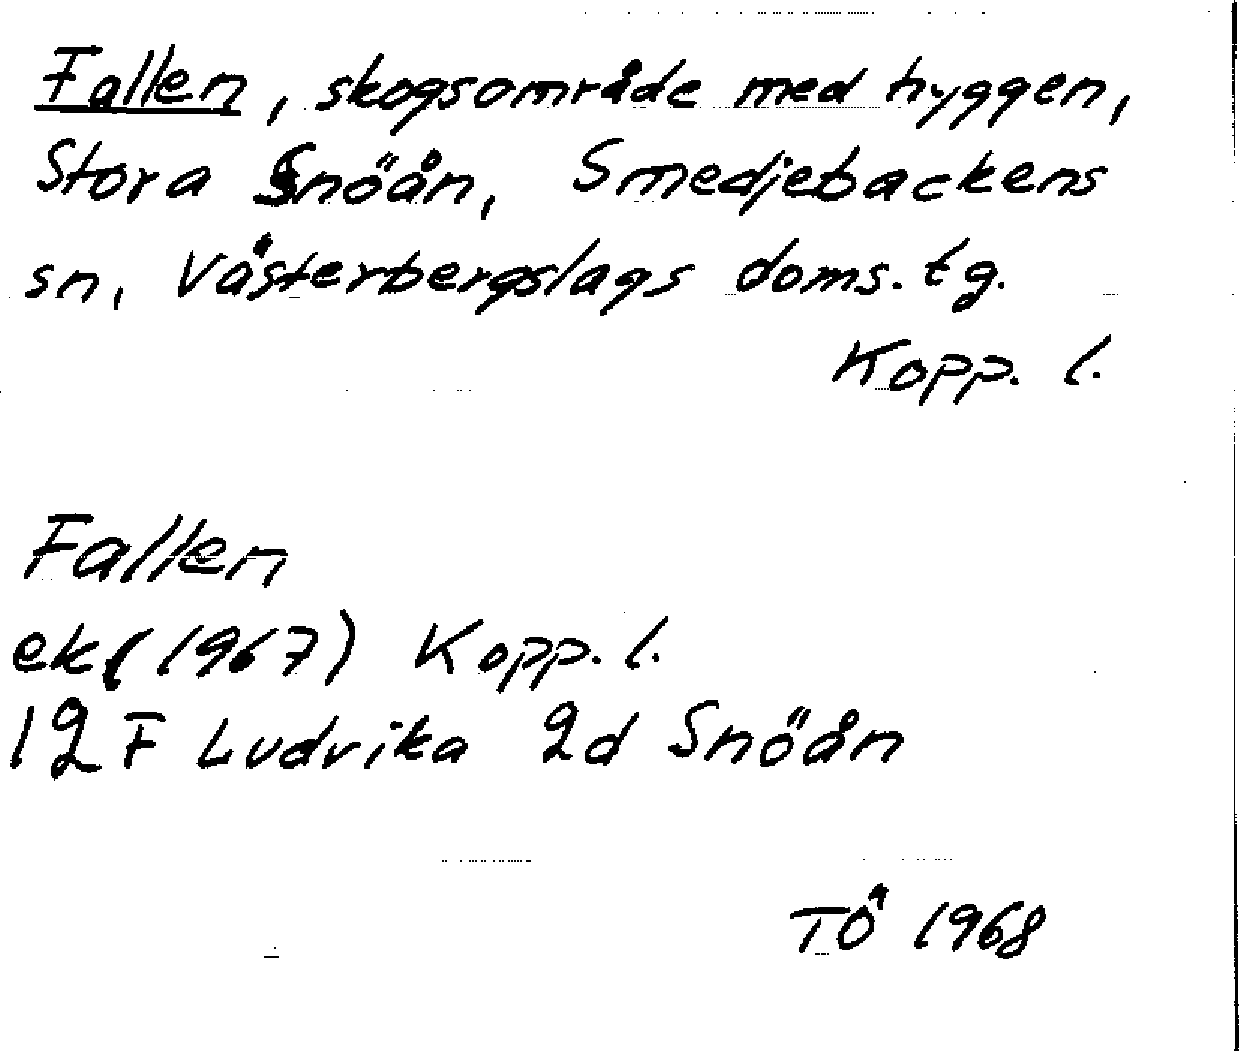 Fallen, skogsområde med hyggen,
Stora Snöån, Smedjebackens
sn, Västerbergslags doms. tg.
Kopp. l.
Fallen
ek (1967) Kopp. l.
12 F Ludvika 2d Snöån
TÖ 1968